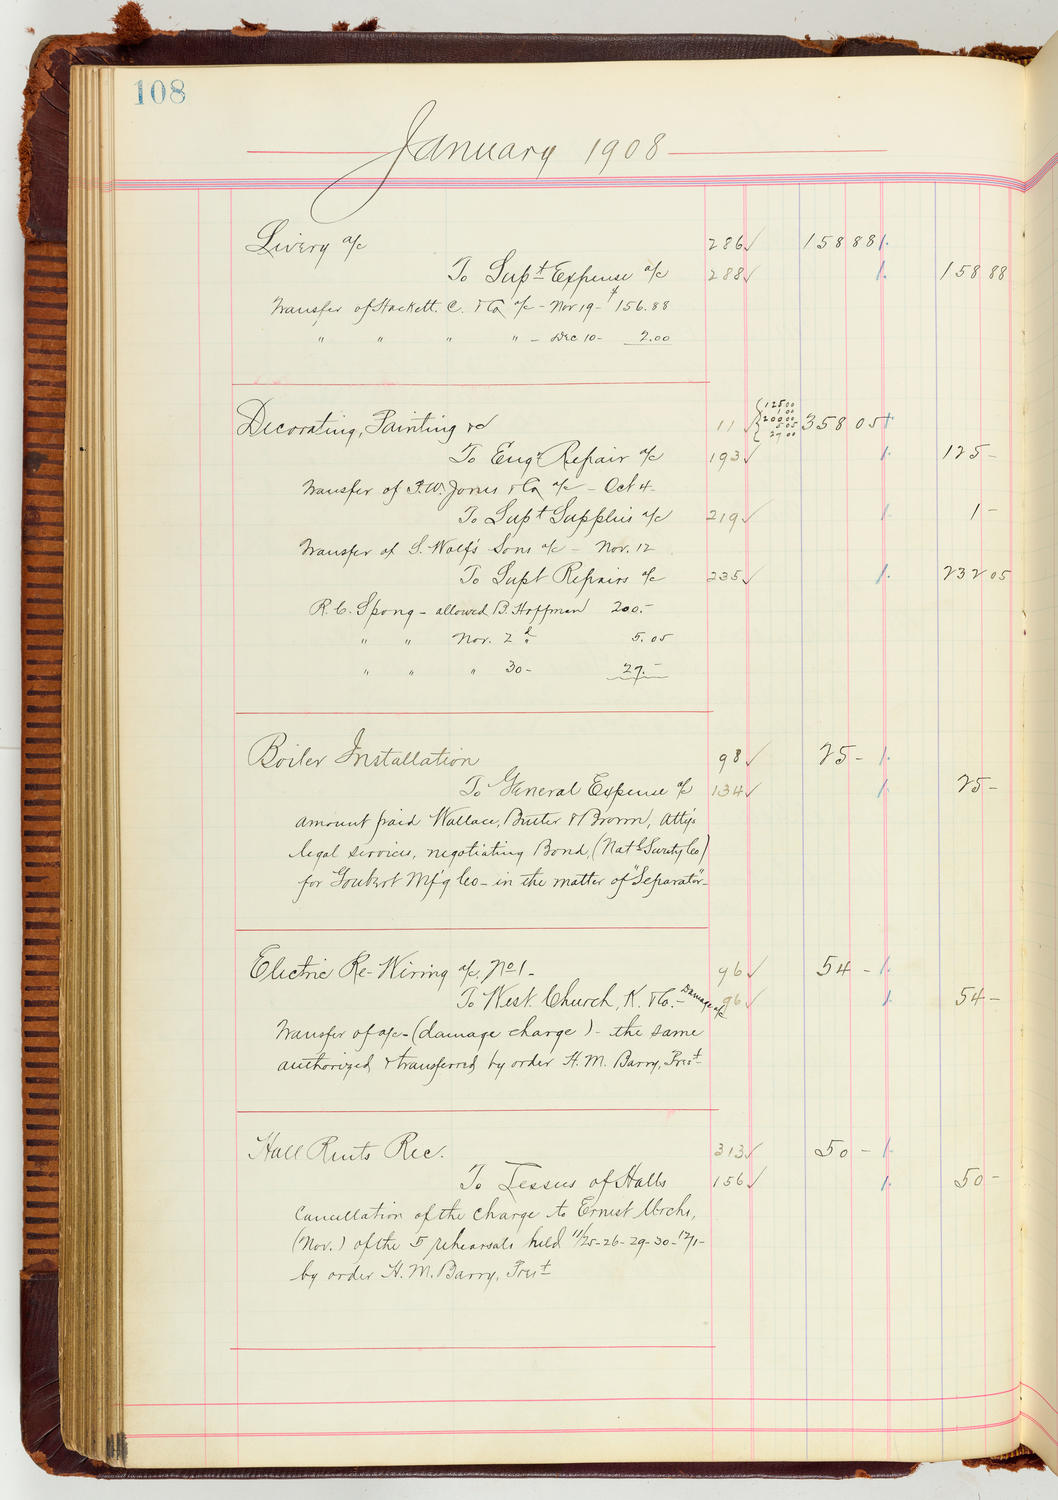 108
January 1908
Livery a/c 286 ✓ 158 88
To Supt Expense a/c 288 ✓ 158 88
Transfer of Hackett, C. & Co a/c - Nov 19 - $156.88
" " " " - Dec 10 - 2.00
Decorating, Painting &c 11 ✓ { 125 00 1 00 200 00 5 05 27 00 358 05
To Engr Repair a/c 193 ✓ 125 -
Transfer of F.W. Jones & Co a/c - Oct 4 -
To Supt Supplies a/c 219 ✓ 1 -
Transfer of S. Wolf's Sons a/c - Nov. 12
To Supt Repairs a/c 235 ✓ 232 05
R.C. Spong - allowed B. Hoffman 200. -
" " Nov. 2d 5.05
" " " 30 - 27. -
Boiler Installation 98 ✓ 25 -
To General Expense a/c 134 ✓ 25 -
amount paid Wallace, Butler & Brown, Att'ys
legal services, negotiating Bond, (Nat'l Surety Co)
for Goubert Mf'g Co - in the matter of "Separator" -
Electric Re-Wiring a/c, No 1 - 96 ✓ 54 -
To West. Church, K. & Co. - Damage a/c 96 ✓ 54 -
Transfer of a/c - (damage charge) - the same
authorized & transferred by order H. M. Barry, Prest -
Hall Rents Rec. 313 ✓ 50 -
To Lessees of Halls 156 ✓ 50 -
Cancellation of the charge to Ernest
(Nov.) of the 5 rehearsals held 11/25-26-29-30-12/1-
by order H. M. Barry, Prest